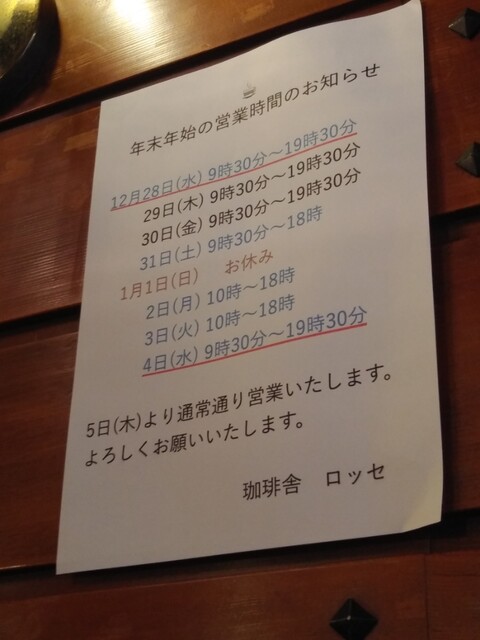 年末年始の営業時間のお知らせ
12月28日(水) 9時30分～19時30分
29日(木) 9時30分～19時30分
30日(金) 9時30分～19時30分
31日(土) 9時30分～18時
1月1日(日) お休み
2日(月) 10時～18時
3日(火) 10時～18時
4日(水) 9時30～19時30分
5日(木)より通常通り営業いたします。
よろしくお願いいたします。
珈琲舎 ロッセ